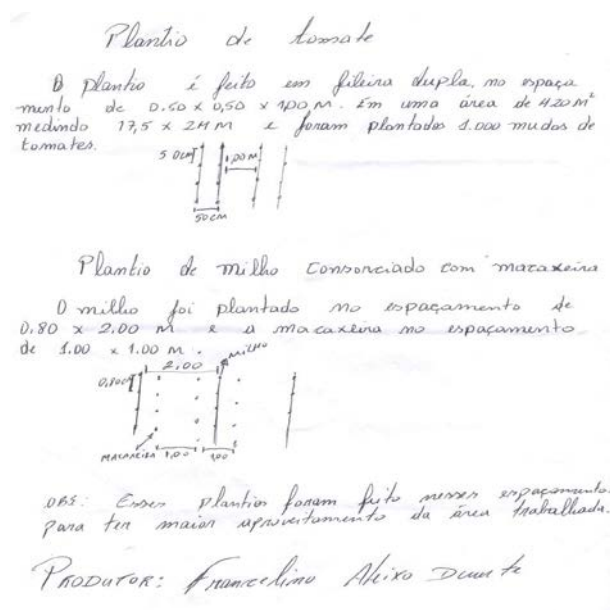 Plantio de tomate
O plantio é feito em fileira dupla, no espaça
mento de 0.50 x 0,50 x 1,00 m. Em uma área de 420 M²
medindo 17,5 x 24 m e foram plantados 1.000 mudas de
tomates.
50cm 1,00 M
50 cm
Plantio de milho consorciado com macaxeira
O milho foi plantado no espaçamento de
0.80 x 2,00 m e a macaxeira no espaçamento
de 1.00 x 1.00 m.
MILHO
2,00
0,80cm
MACAXEIRA 1,00 1,00
OBS: Esses plantios foram feito nesses espaçamento.
para ter maior aproveitamento da área trabalhada.
PRODUTOR: Francelino Aleixo